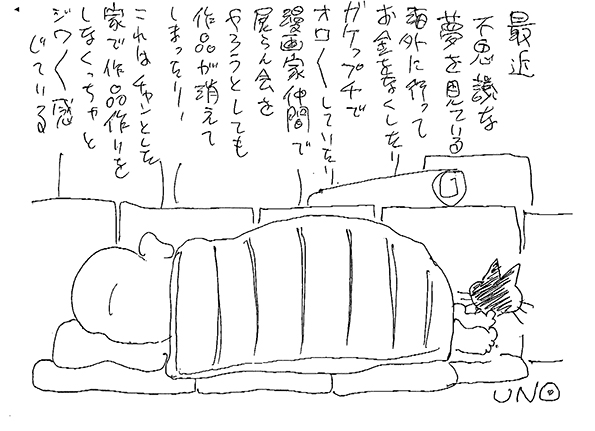 最近
不思議な
夢を見ている
海外に行って
お金をなくしたり
ガケップチで
オロ〱していたり
漫画家仲間で
展らん会を
やろうとしても
作品が消えて
しまったり!
これはチャンとした
家で作品作りを
しなくっちゃと
ジワ〱感
じている
UNO